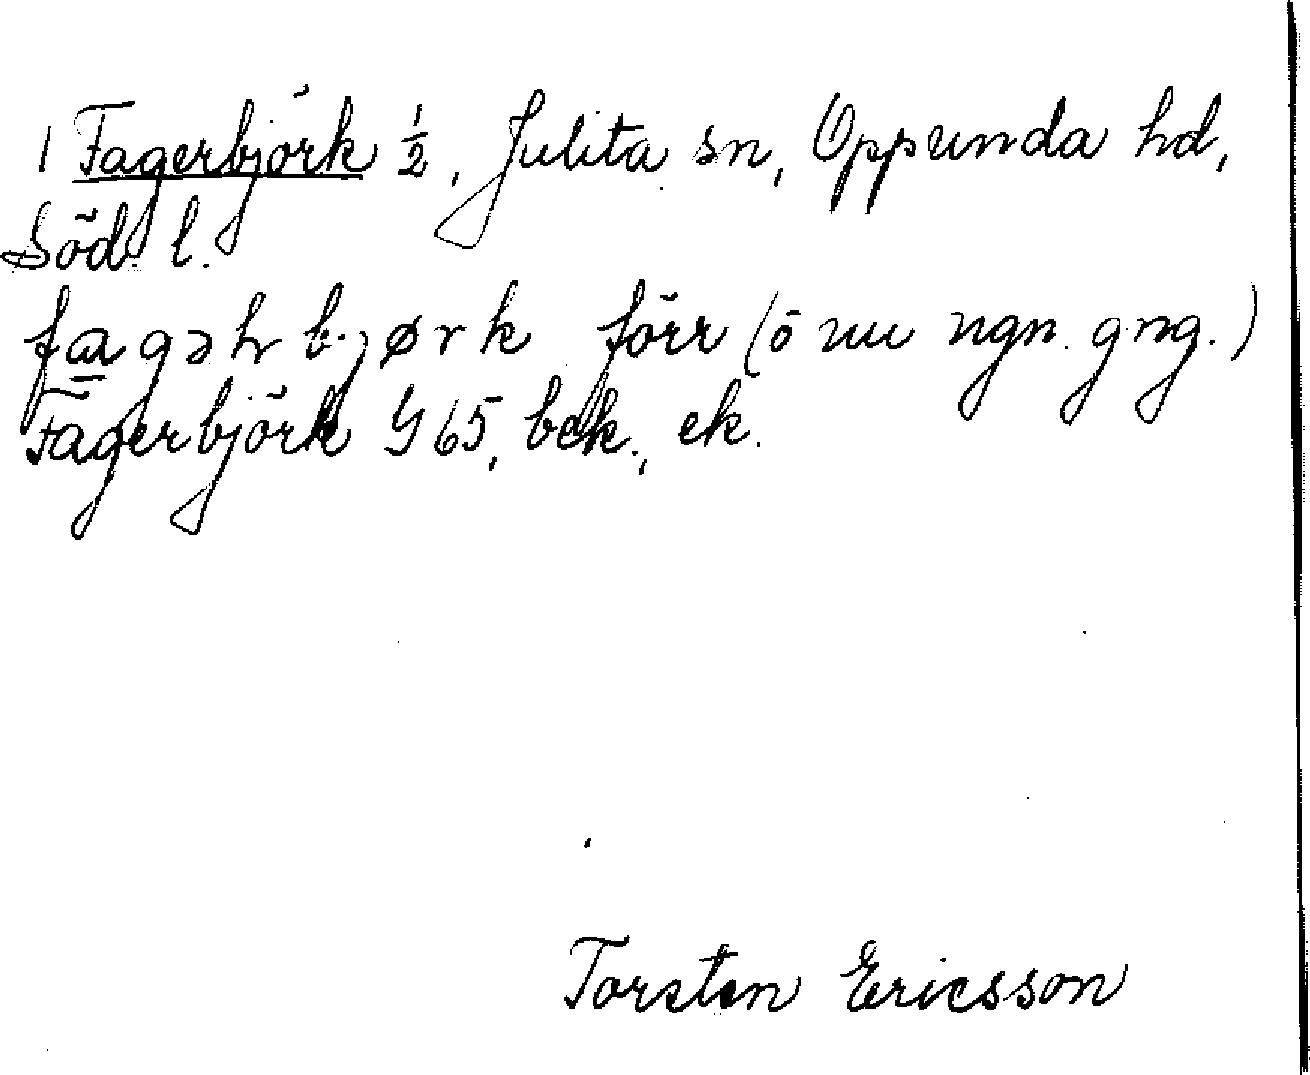 1 Fagerbjörk ½, Julita sn, Oppunda hd,
Söd. l.
fagərbjørk förr (ö nu ngn. gng.)
Fagerbjörk G 65, bek., ek.
Torsten Ericsson